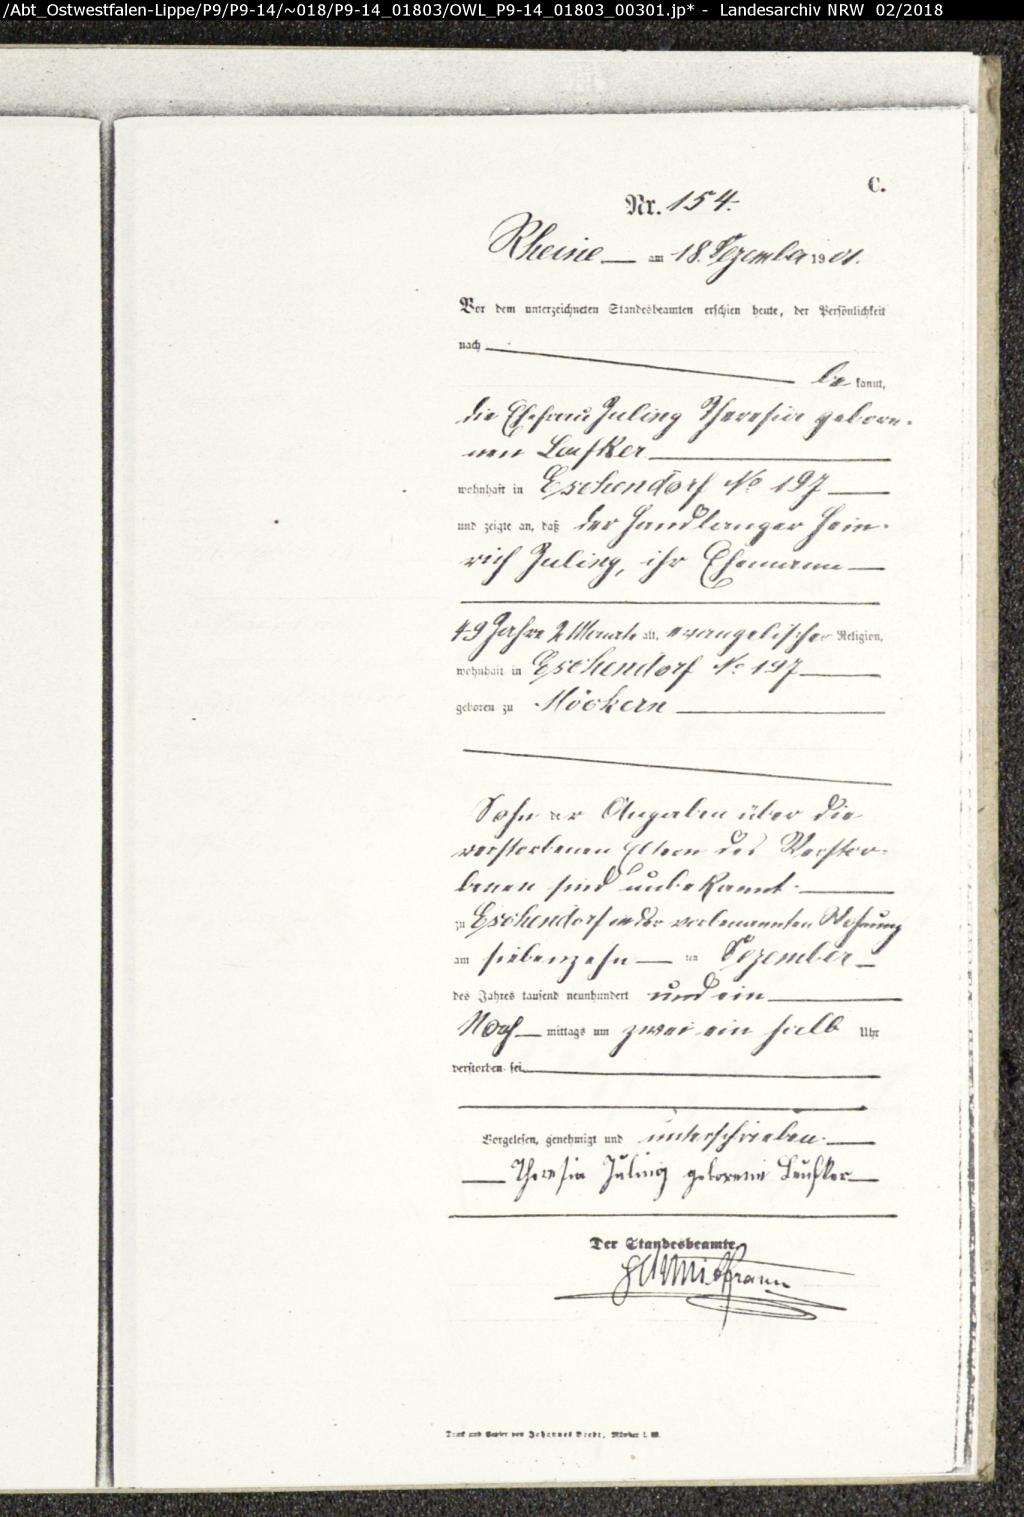 /Abt_Ostwestfalen-Lippe/P9/P9-14/~018/P9-14_01803/OWL_P9-14_01803_00301.jp* - Landesarchiv NRW 02/2018
C.
Nr. 154.
Rheine am 18. Dezember 1901.
Vor dem unterzeichneten Standesbeamten erschien heute, der Persönlichkeit
nach
bekannt,
die Ehefrau Juling Theresia gebore-
nen
wohnhaft in Eschendorf No 197
und zeigte an, daß der Handlanger Hein-
rich Juling, ihr Ehemann
49 Jahre 2 Monate alt, evangelischer Religion,
wohnhaft in Eschendorf No 197
geboren zu Möckern
Sohn der Angaben über die
verstorbenen Eltern des Verstor-
benen sind unbekannt.
zu Eschendorf in der vorbenannten Wohnung
am siebenzehn ten Dezember
des Jahres tausend neunhundert und ein
Nachmittags um zwei ein halb Uhr
verstorben sei
Vorgelesen, genehmigt und unterschrieben.
Theresia Juling geborene
Der Standesbeamte.
Druck und Papier von Johannes Bredt, Münster i. W.